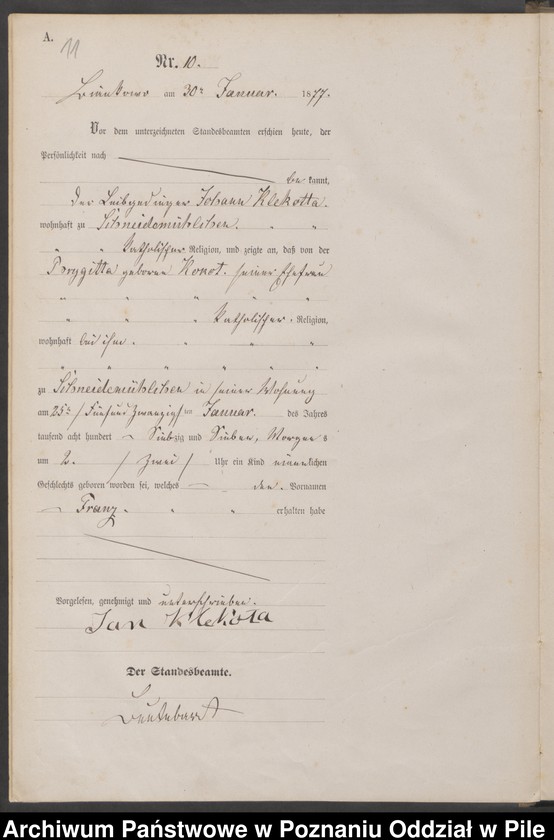 A.
11
Nr. 10.
am 30ten Januar. 1877.
Vor dem unterzeichneten Standesbeamten erschien heute, der
Persönlichkeit nach
be kannt,
der Leibgedinger Johann Klekotta.
wohnhaft zu Schneidemühlchen. " "
" " Katholischer Religion, und zeigte an, daß von der
Brygitta geborene Konot. seiner Ehefrau
" " " " "
" " " Katholischer Religion,
wohnhaft bei ihm. " " "
" " " " " "
zu Schneidemühlchen in seiner Wohnung
am 25ten / Fünfundzwanzigsten Januar. des Jahres
tausend acht hundert Siebzig und Sieben, Morgens
um 2. / Zwei / Uhr ein Kind männlichen
Geschlechts geboren worden sei, welches den Vornamen
Franz. " " erhalten habe
Vorgelesen, genehmigt und unterschrieben.
Jan Klekota
Der Standesbeamte.
Archiwum Państwowe w Poznaniu Oddział w Pile